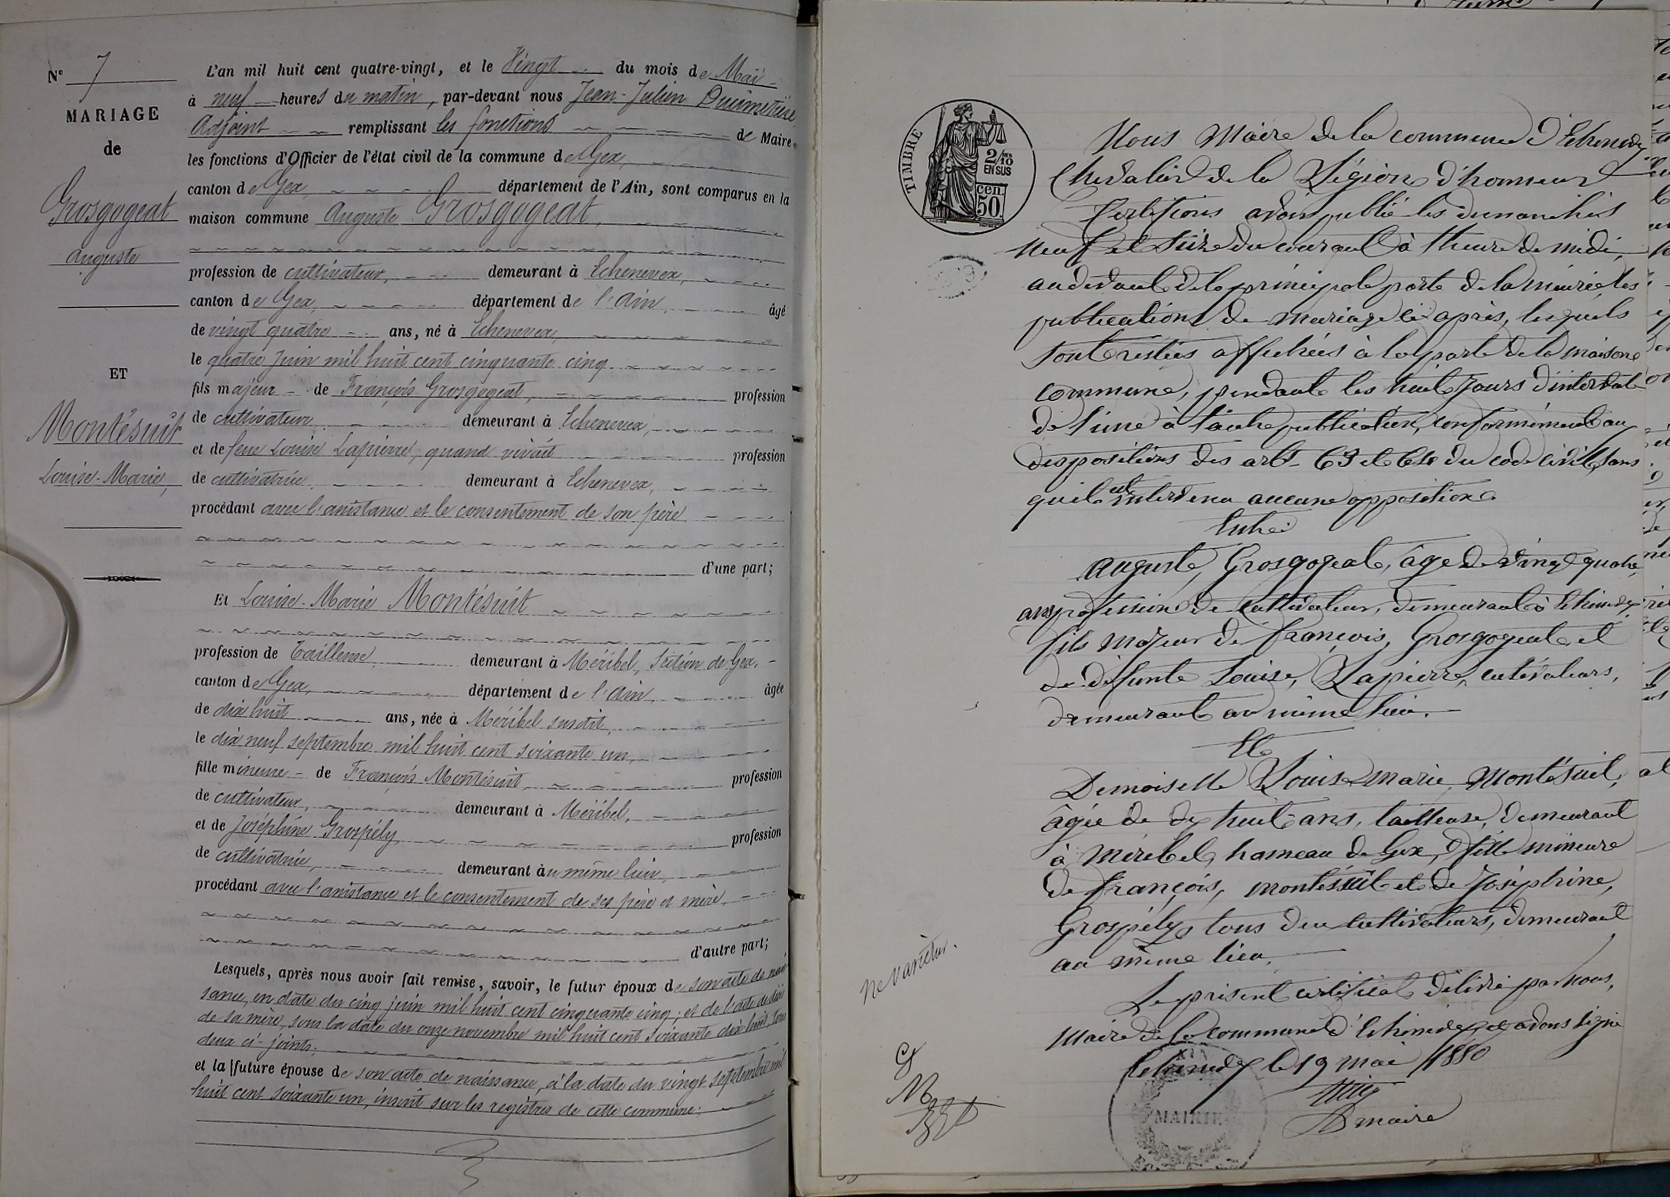 N° 7
MARIAGE
de
Grosgogeat
Auguste
ET
Montésuit
Louise-Marie,
L'an mil huit cent quatre-vingt, et le Vingt du mois de Mai
à neuf heures du matin, par-devant nous Jean-Julien
Adjoint remplissant les fonctions de Maire
les fonctions d'Officier de l'état civil de la commune de Gex,
canton de Gex, département de l'Ain, sont comparus en la
maison commune Auguste Grosgogeat,
profession de cultivateur, demeurant à Echenevex,
canton de Gex, département de l'Ain, âgé
de vingt quatre ans, né à Echenevex,
le quatre Juin mil huit cent cinquante cinq
fils majeur de François Grosgogeat, profession
de cultivateur demeurant à Echenevex,
et de feue Louise Lapierre, quand vivait profession
de cultivatrice demeurant à Echenevex,
procédant avec l'assistance et le consentement de son père
d'une part;
Et Louise-Marie Montésuit
profession de Tailleuse demeurant à Méribel, section de Gex,
canton de Gex, département de l'Ain, âgée
de dix huit ans, née à Méribel susdit,
le dix neuf septembre mil huit cent soixante un,
fille mineure de François Montésuit, profession
de cultivateur, demeurant à Méribel,
et de Joséphine Grospély, profession
de cultivatrice, demeurant au même lieu,
procédant avec l'assistance et le consentement de ses père et mère,
d'autre part;
Lesquels, après nous avoir fait remise, savoir, le futur époux de son acte de nais
sance, en date du cinq juin mil huit cent cinquante cinq; et de l'acte de décès
de sa mère, sous la date du onze novembre mil huit cent soixante dix huit, tous
deux ci-joints;
et la future épouse de son acte de naissance, à la date du vingt septembre mil
huit cent soixante un, inscrit sur les registres de cette commune;
TIMBRE
2/10
EN SUS
cen.
50
Nous Maire de la commune d'Echenevex
Chevalier de la Légion d'honneur
Certifions avoir publié les dimanches
neuf et seize du courant à l'heure de midi,
au devant de la principale porte de la mairie, les
publications de mariage ci après, lesquels
sont restées affichées à la porte de la maison
commune, pendant les huit jours d'intervale
de l'une à l'autre publication, conformément au
dispositions des arts. 63 et 64 du code civil, sans
qu'il est intervenu aucune opposition
Entre
Auguste, Grosgogeat, âgé de vingt quatre
ans profession de cultivateur, demeurant à Echenevex
fils majeur de françois, Grosgogeat et
de défunte Louise, Lapierre, cultivateurs,
demeurant au même lieu.
Et
Demoiselle Louise marie, Montésuit,
âgée de dix huit ans, tailleuse, demeurant
à Méribel, hameau de Gex, fille mineure
de françois, montesuit et de Joséphine,
Grospély, tous deux cultivateurs, demeurant
au même lieu.
Le présent certificat délivré par nous,
Maire de la commune d'Echenevex et avons signé
Echenevex le 19 mai 1880
maire
MAIRIE
Ne varietur.